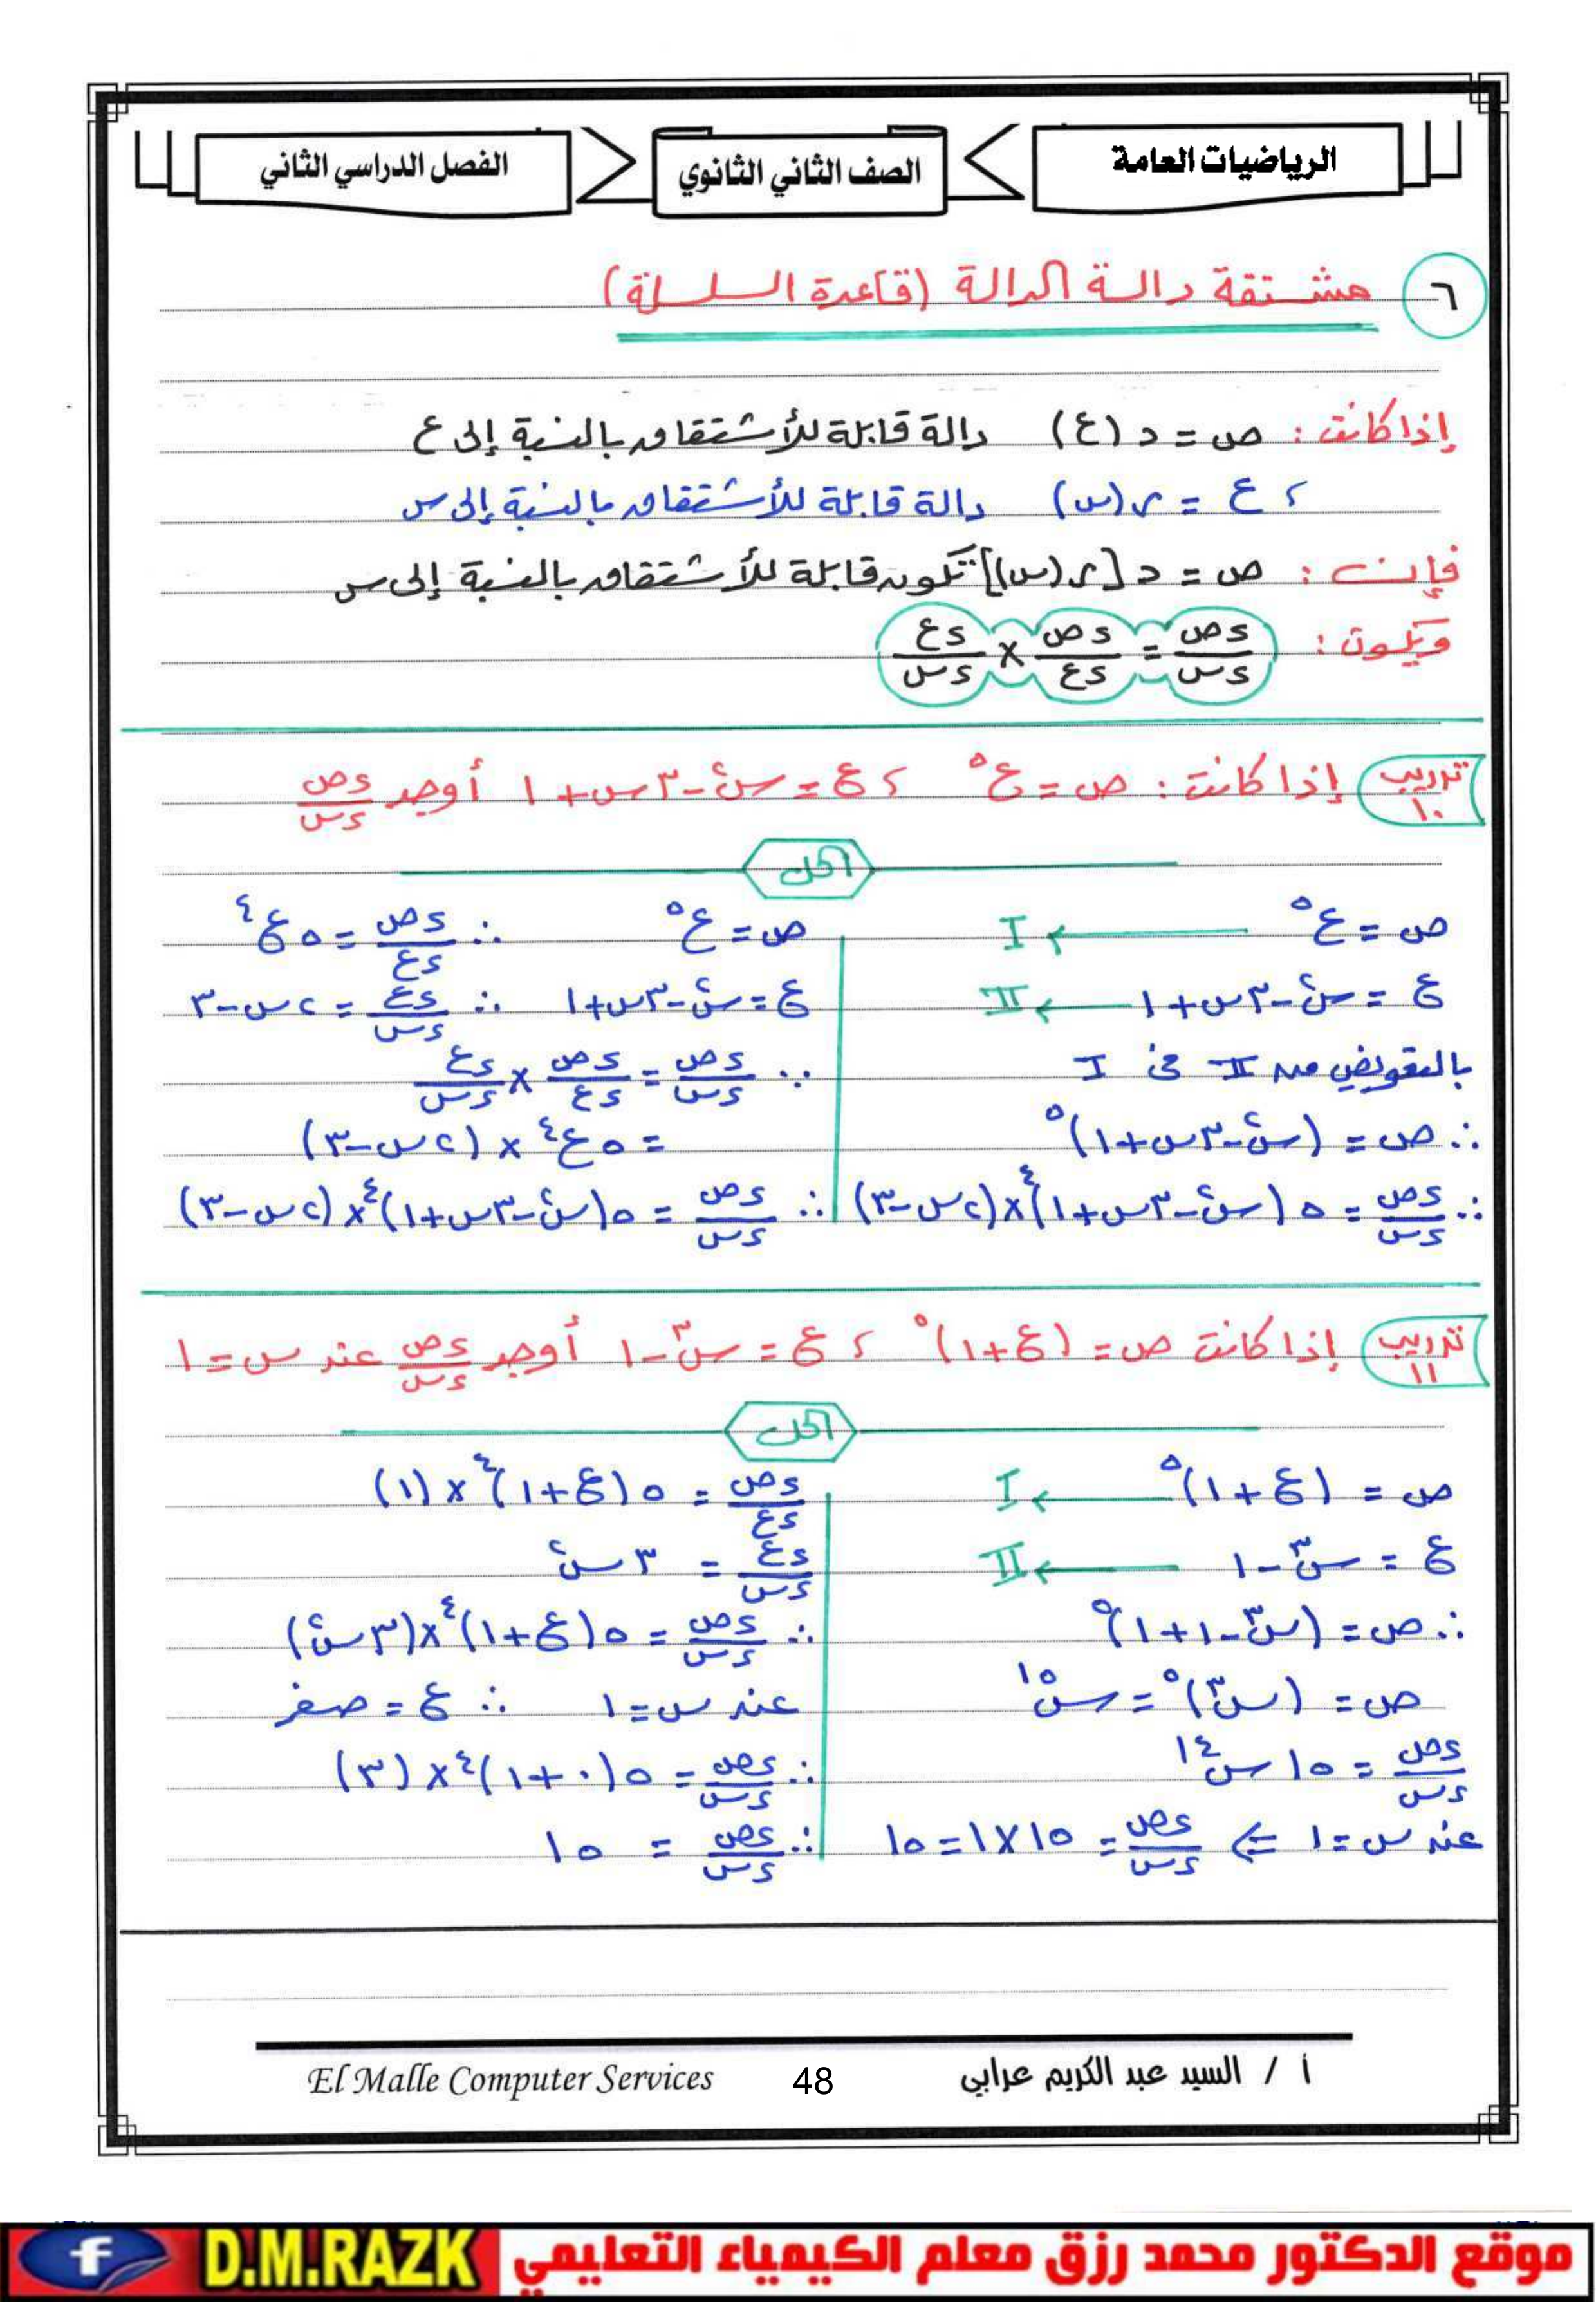 الرياضيات العامة
الصف الثاني الثانوي
الفصل الدراسي الثاني
٦ مشتقة دالة الدالة (قاعدة السلسلة)
إذا كانت : ص = د (ع) دالة قابلة للأشتقاق بالنسبة إلى ع
، ع = ر (س) دالة قابلة للأشتقاق بالنسبة إلى س
فإن : ص = د [ر (س)] تكون قابلة للأشتقاق بالنسبة إلى س
ويكون : ءص/ءس = ءص/ءع × ءع/ءس
تدريب ١٠ إذا كانت : ص = ع⁵ ، ع = س² - ٣س + ١ أوجد ءص/ءس
الحل
ص = ع⁵ ← I
ع = س² - ٣س + ١ ← II
بالتعويض من II في I
∴ ص = (س² - ٣س + ١)⁵
∴ ءص/ءس = ٥ (س² - ٣س + ١)⁴ × (٢س - ٣)
ص = ع⁵ ∴ ءص/ءع = ٥ع⁴
ع = س² - ٣س + ١ ∴ ءع/ءس = ٢س - ٣
∵ ءص/ءس = ءص/ءع × ءع/ءس
= ٥ع⁴ × (٢س - ٣)
∴ ءص/ءس = ٥ (س² - ٣س + ١)⁴ × (٢س - ٣)
تدريب ١١ إذا كانت ص = (ع + ١)⁵ ، ع = س³ - ١ أوجد ءص/ءس عند س = ١
الحل
ص = (ع + ١)⁵ ← I
ع = س³ - ١ ← II
∴ ص = (س³ - ١ + ١)⁵
ص = (س³)⁵ = س¹⁵
ءص/ءس = ١٥ س¹⁴
عند س = ١ ⇐ ءص/ءس = ١٥ × ١ = ١٥
ءص/ءع = ٥ (ع + ١)⁴ × (١)
ءع/ءس = ٣س²
∴ ءص/ءس = ٥ (ع + ١)⁴ × (٣س²)
عند س = ١ ∴ ع = صفر
∴ ءص/ءس = ٥ (٠ + ١)⁴ × (٣)
∴ ءص/ءس = ١٥
أ / السيد عبد الكريم عرابي
48
El Malle Computer Services
موقع الدكتور محمد رزق معلم الكيمياء التعليمي
D.M.RAZK
f